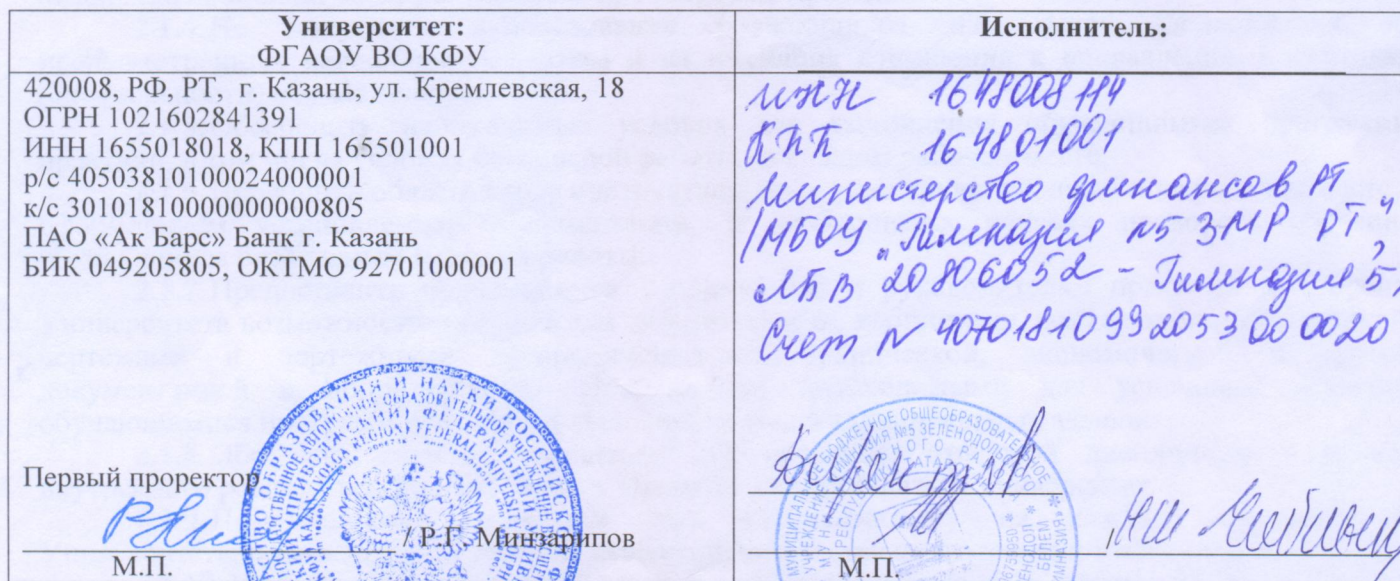 Университет:
ФГАОУ ВО КФУ
420008, РФ, РТ, г. Казань, ул. Кремлевская, 18
ОГРН 1021602841391
ИНН 1655018018, КПП 165501001
р/с 40503810100024000001
к/с 30101810000000000805
ПАО «Ак Барс» Банк г. Казань
БИК 049205805, ОКТМО 92701000001
Первый проректор
/ Р.Г. Минзарипов
М.П.
Исполнитель:
ИНН 1648008114
КПП 164801001
Министерство финансов РТ
/МБОУ "Гимназия №5 ЗМР РТ"
ЛБВ 20806052 - Гимназия 5
Счет N 40701810992053000020
М.П.